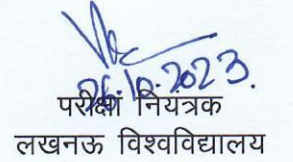 26.10.2023.
परीक्षा नियंत्रक
लखनऊ विश्वविद्यालय